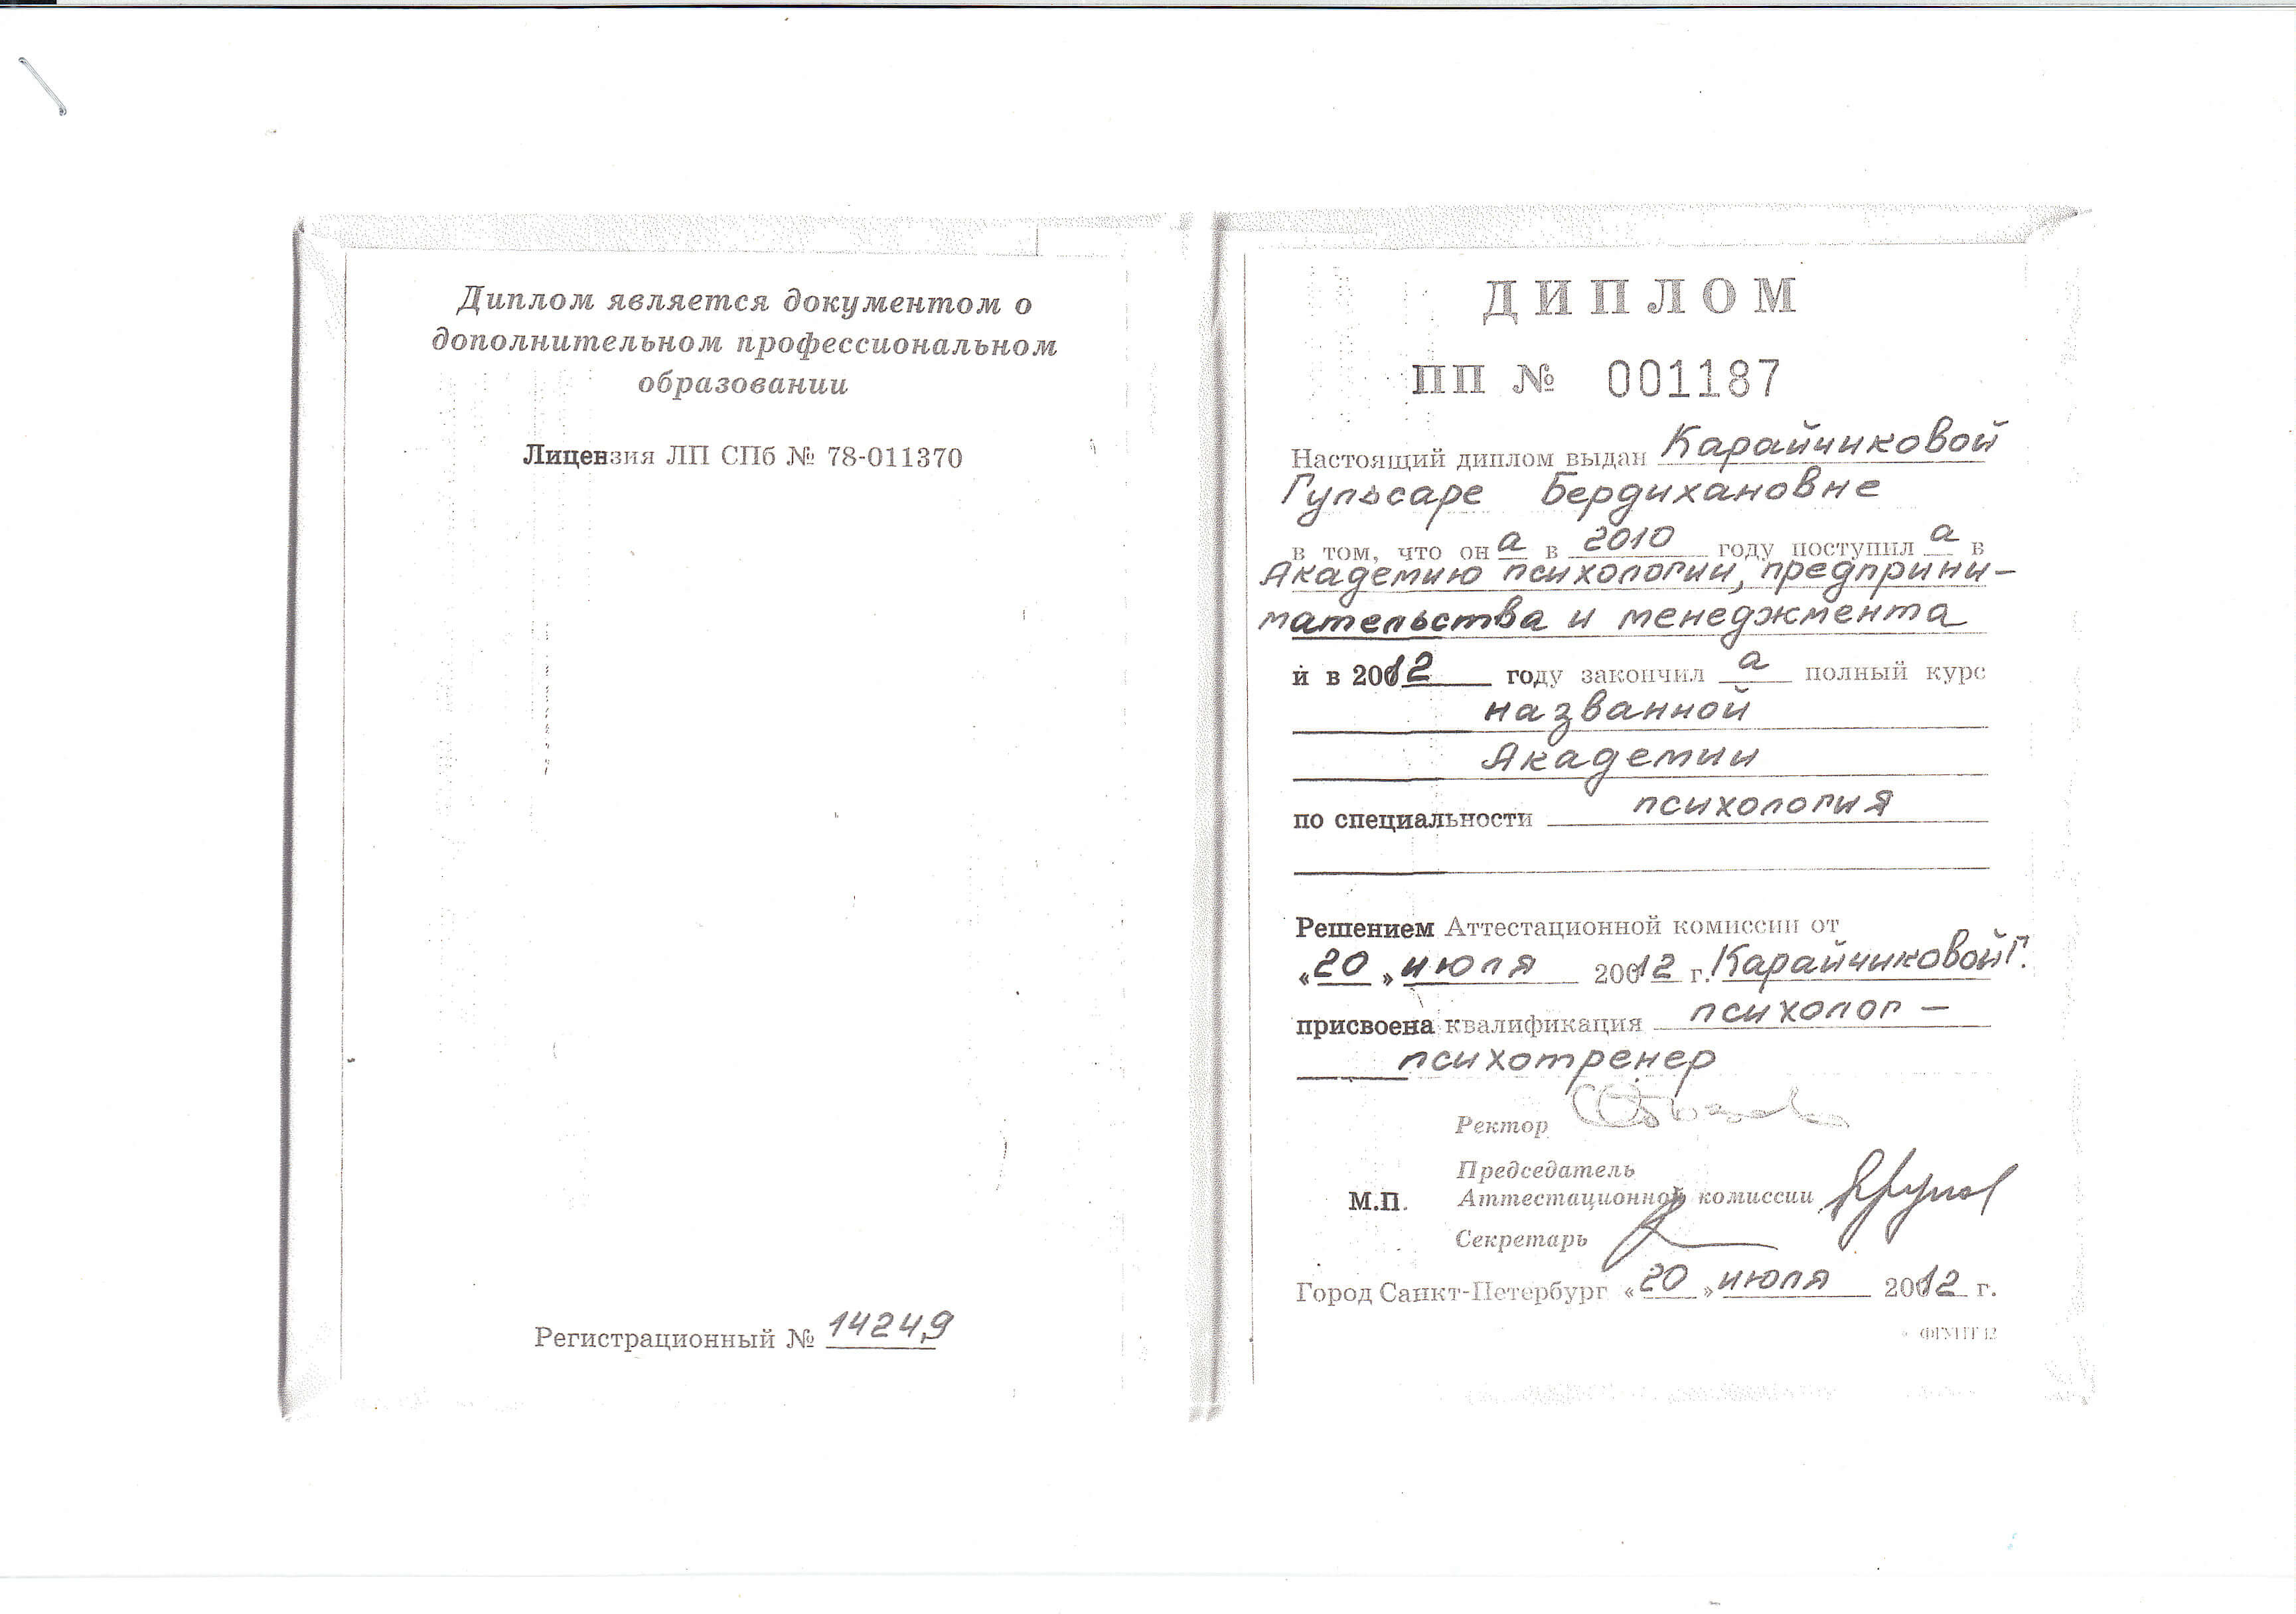 Диплом является документом о
дополнительном профессиональном
образовании
Лицензия ЛП СПб № 78-011370
Регистрационный № 14249
ДИПЛОМ
ПП № 001187
Настоящий диплом выдан Карайчиковой
Гульсаре Бердихановне
в том, что она в 2010 году поступила в
Академию психологии, предприни-
мательства и менеджмента
и в 2012 году закончила полный курс
названной
Академии
по специальности психология
Решением Аттестационной комиссии от
«20» июля 2012 г. Карайчиковой Г.
присвоена квалификация психолог -
психотренер
Ректор
Председатель
М.П. Аттестационной комиссии
Секретарь
Город Санкт-Петербург «20» июля 2012 г.